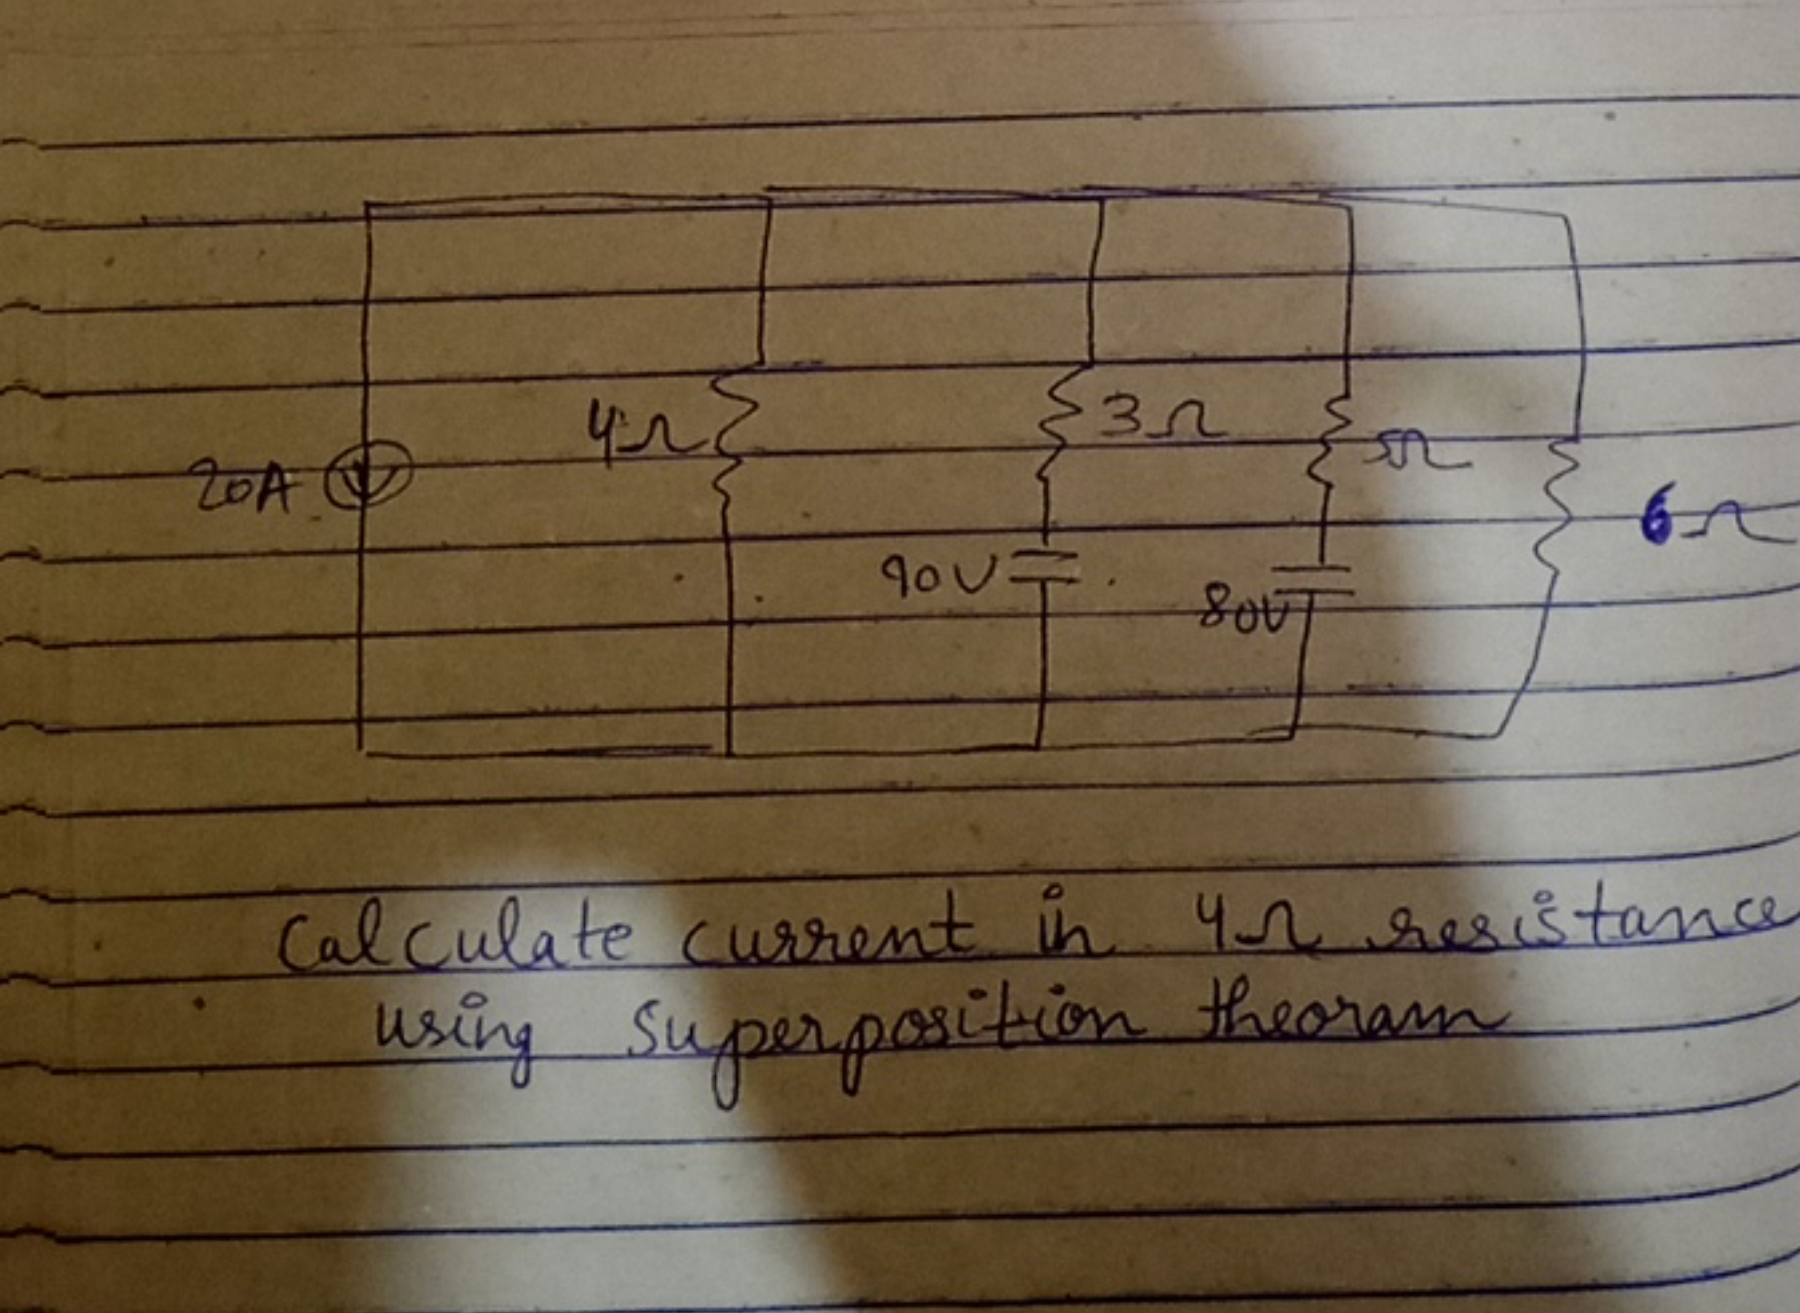 20A
4Ω
3Ω
5Ω
6Ω
90V
80V
Calculate current in 4Ω resistance
using superposition theoram